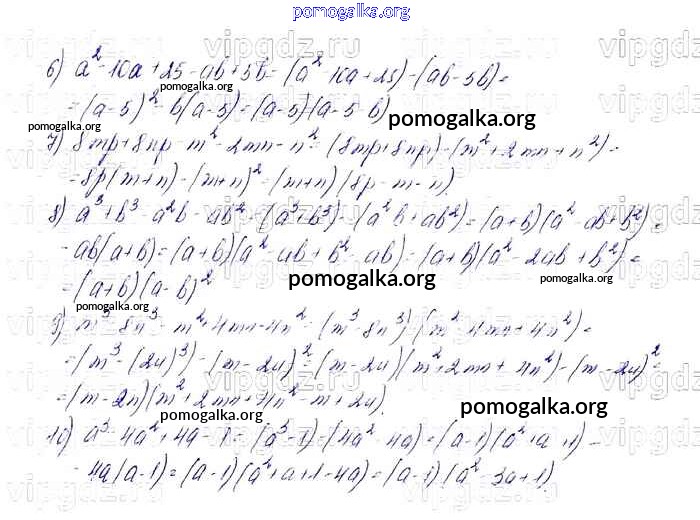 pomogalka.org
6) a² - 10a + 25 - ab + 5b = (a² - 10a + 25) - (ab - 5b) =
= (a - 5)² - b(a - 5) = (a - 5)(a - 5 - b)
pomogalka.org
pomogalka.org
pomogalka.org
7) 8mp + 8np - m² - 2mn - n² = (8mp + 8np) - (m² + 2mn + n²) =
= 8p(m + n) - (m + n)² = (m + n)(8p - m - n)
8) a³ + b³ - a²b - ab² = (a³ + b³) - (a²b + ab²) = (a + b)(a² - ab + b²) -
- ab(a + b) = (a + b)(a² - ab + b² - ab) = (a + b)(a² - 2ab + b²) =
= (a + b)(a - b)²
pomogalka.org
pomogalka.org
pomogalka.org
9) m³ - 8n³ - m² + 4mn - 4n² = (m³ - 8n³) - (m² - 4mn + 4n²) =
= (m³ - (2n)³) - (m - 2n)² = (m - 2n)(m² + 2mn + 4n²) - (m - 2n)² =
= (m - 2n)(m² + 2mn + 4n² - m + 2n)
pomogalka.org
pomogalka.org
10) a³ - 4a² + 4a - 1 = (a³ - 1) - (4a² - 4a) = (a - 1)(a² + a + 1) -
- 4a(a - 1) = (a - 1)(a² + a + 1 - 4a) = (a - 1)(a² - 3a + 1)
pomogalka.org